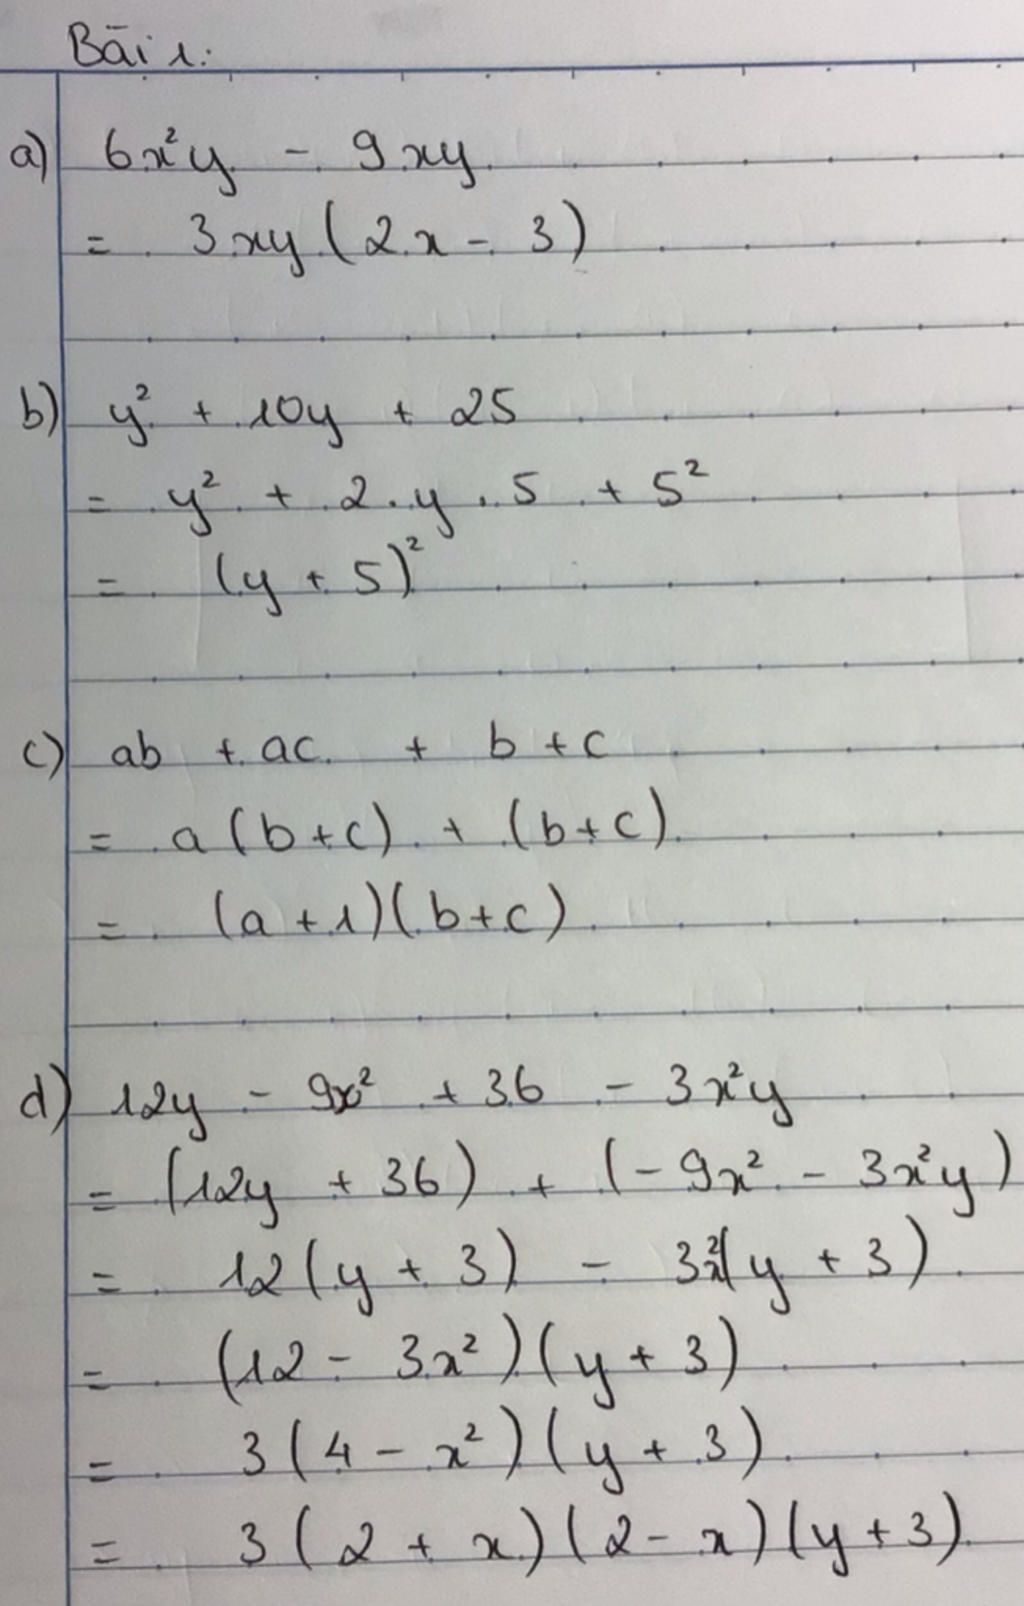 Bài 1:
a) 6x²y - 9xy
= 3xy(2x - 3)
b) y² + 10y + 25
= y² + 2.y.5 + 5²
= (y + 5)²
c) ab + ac + b + c
= a(b+c) + (b+c)
= (a + 1)(b+c)
d) 12y - 9x² + 36 - 3x²y
= (12y + 36) + (-9x² - 3x²y)
= 12(y + 3) - 3x²(y + 3)
= (12 - 3x²)(y + 3)
= 3(4 - x²)(y + 3)
= 3(2 + x)(2 - x)(y + 3)